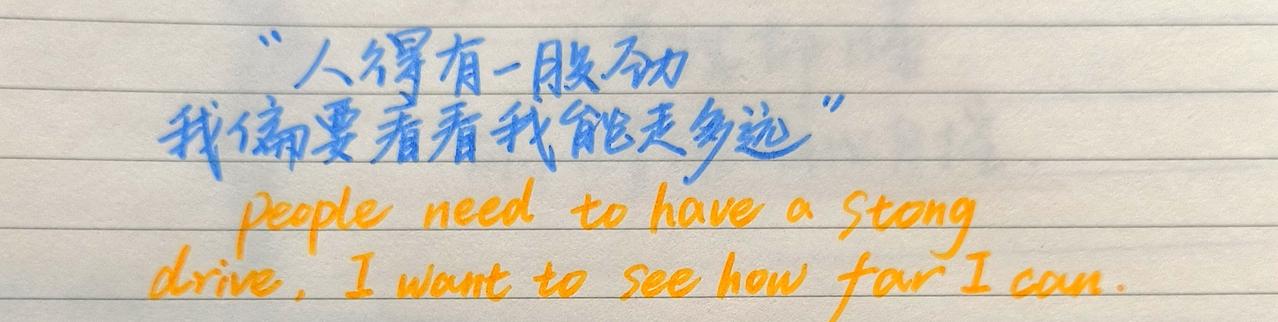 “人得有一股劲
我偏要看看我能走多远”
people need to have a stong
drive. I want to see how far I can.